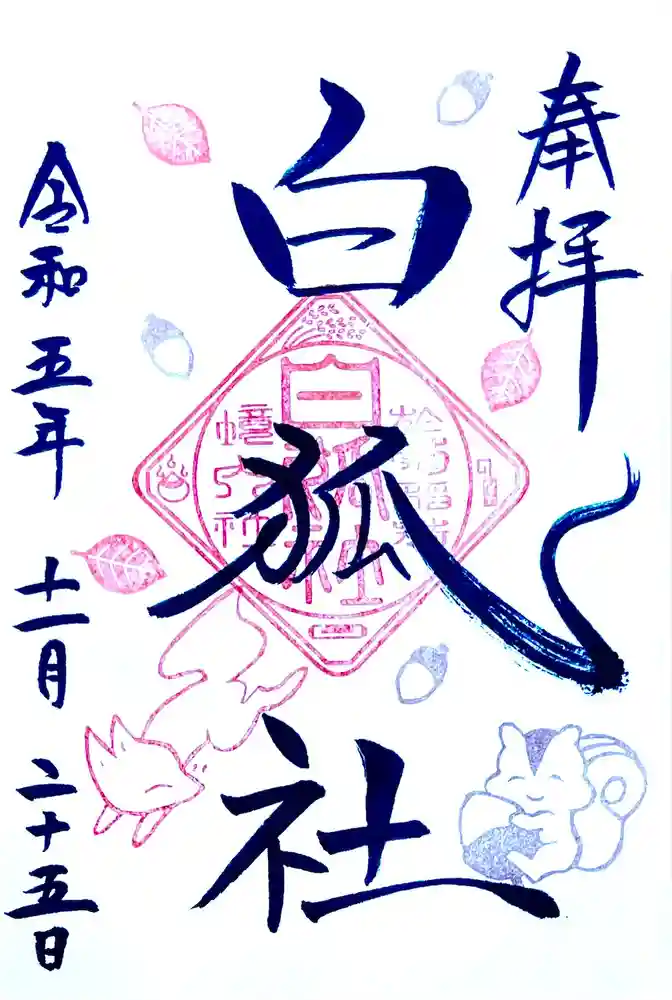 奉拝
白狐社
白狐社
令和五年 十一月 二十五日